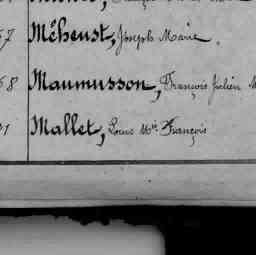 57 Méheust, Joseph Marie.
58 Maumusson, François Julien M
Mallet, Louis Mie François